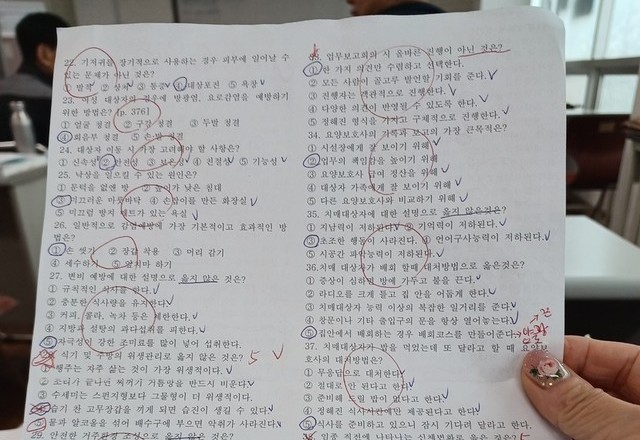 22. 기저귀를 장기적으로 사용하는 경우 피부에 일어날 수
있는 문제가 아닌 것은?
① 발적 ② 상처 ③ 통증 ④ 대상포진 ⑤ 욕창
23. 여성 대상자의 경우에 방광염, 요로감염을 예방하기
위한 방법은? [p. 376]
① 얼굴 청결 ② 구강 청결 ③ 두발 청결
④ 회음부 청결 ⑤ 손·발 청결
24. 대상자 이동 시 가장 고려해야 할 사항은?
① 신속성 ② 안전성 ③ ④ 친절성 ⑤ 기능성
25. 낙상을 일으킬 수 있는 원인은?
① 문턱을 없앤 방 ② 높이가 낮은 침대
③ 미끄러운 마룻바닥 ④ 손잡이를 만든 화장실
⑤ 미끄럼 방지 매트가 있는 욕실
26. 일반적으로 감염예방에 가장 기본적이고 효과적인 방
법은?
① 손 씻기 ② 장갑 착용 ③ 머리 감기
④ 세수하기 ⑤ 하기
27. 변비 예방에 대한 설명으로 옳지 않은 것은?
① 규칙적인 식사를 한다.
② 충분한 식사량을 유지한다.
③ 커피, 콜라, 녹차 등은 제한한다.
④ 지방과 설탕의 과다섭취를 피한다.
⑤ 자극성이 강한 조미료를 많이 넣어 섭취한다.
식기 및 주방의 위생관리로 옳지 않은 것은? 5
① 행주는 자주 삶는 것이 가장 위생적이다.
② 조리가 끝나면 찌꺼기 거름망을 반드시 비운다.
③ 수세미는 스펀지형보다 그물형이 더 위생적이다.
습기 찬 고무장갑을 끼게 되면 습진이 생길 수 있다.
물과 알코올을 섞어 배수구에 부으면 악취가 사라진다.
29. 안전한 거주환경 조성으로 옳지 않은 것은?
33. 업무보고회의 시 올바른 진행이 아닌 것은?
① 한 가지 의견만 수렴하고 선택한다.
② 모든 사람이 골고루 발언할 기회를 준다.
③ 진행자는 객관적으로 진행한다.
④ 다양한 의견이 반영될 수 있도록 한다.
⑤ 정해진 형식을 가지고 구체적으로 진행한다.
34. 요양보호사의 기록과 보고의 가장 근본목적은?
① 시설장에게 잘 보이기 위해
② 업무의 책임감을 높이기 위해
③ 요양보호사 급여 정산을 위해
④ 대상자 가족에게 잘 보이기 위해
⑤ 다른 요양보호사와 비교하기 위해
35. 치매대상자에 대한 설명으로 옳지 않은것은?
① 지남력이 저하된다. ② 기억력이 저하된다.
③ 초조한 행동이 사라진다. ④ 언어구사능력이 저하된다.
⑤ 시공간 파악능력이 저하된다.
36.치매 대상자가 배회 할때 대처방법으로 옳은것은?
① 증상이 심하면 방에 가두고 불을 끈다.
② 라디오를 크게 틀고 집 안을 어둡게 한다.
③ 치매대상자 능력 이상의 복잡한 일거리를 준다.
④ 창문이나 기타 출입구의 문을 항상 열어놓는다.
⑤ 집안에서 배회하는 경우 배회코스를 만들어준다.
37. 치매대상자가 밥을 먹었는데 또 달라고 할 때 요양보
호사의 대처방법은?
① 무응답으로 대처한다.
② 절대로 안 된다고 한다.
③ 준비해 드릴 밥이 없다고 한다.
④ 정해진 식사시간에만 제공된다고 한다.
⑤ 식사를 준비하고 있으니 잠시 기다려 달라고 한다.